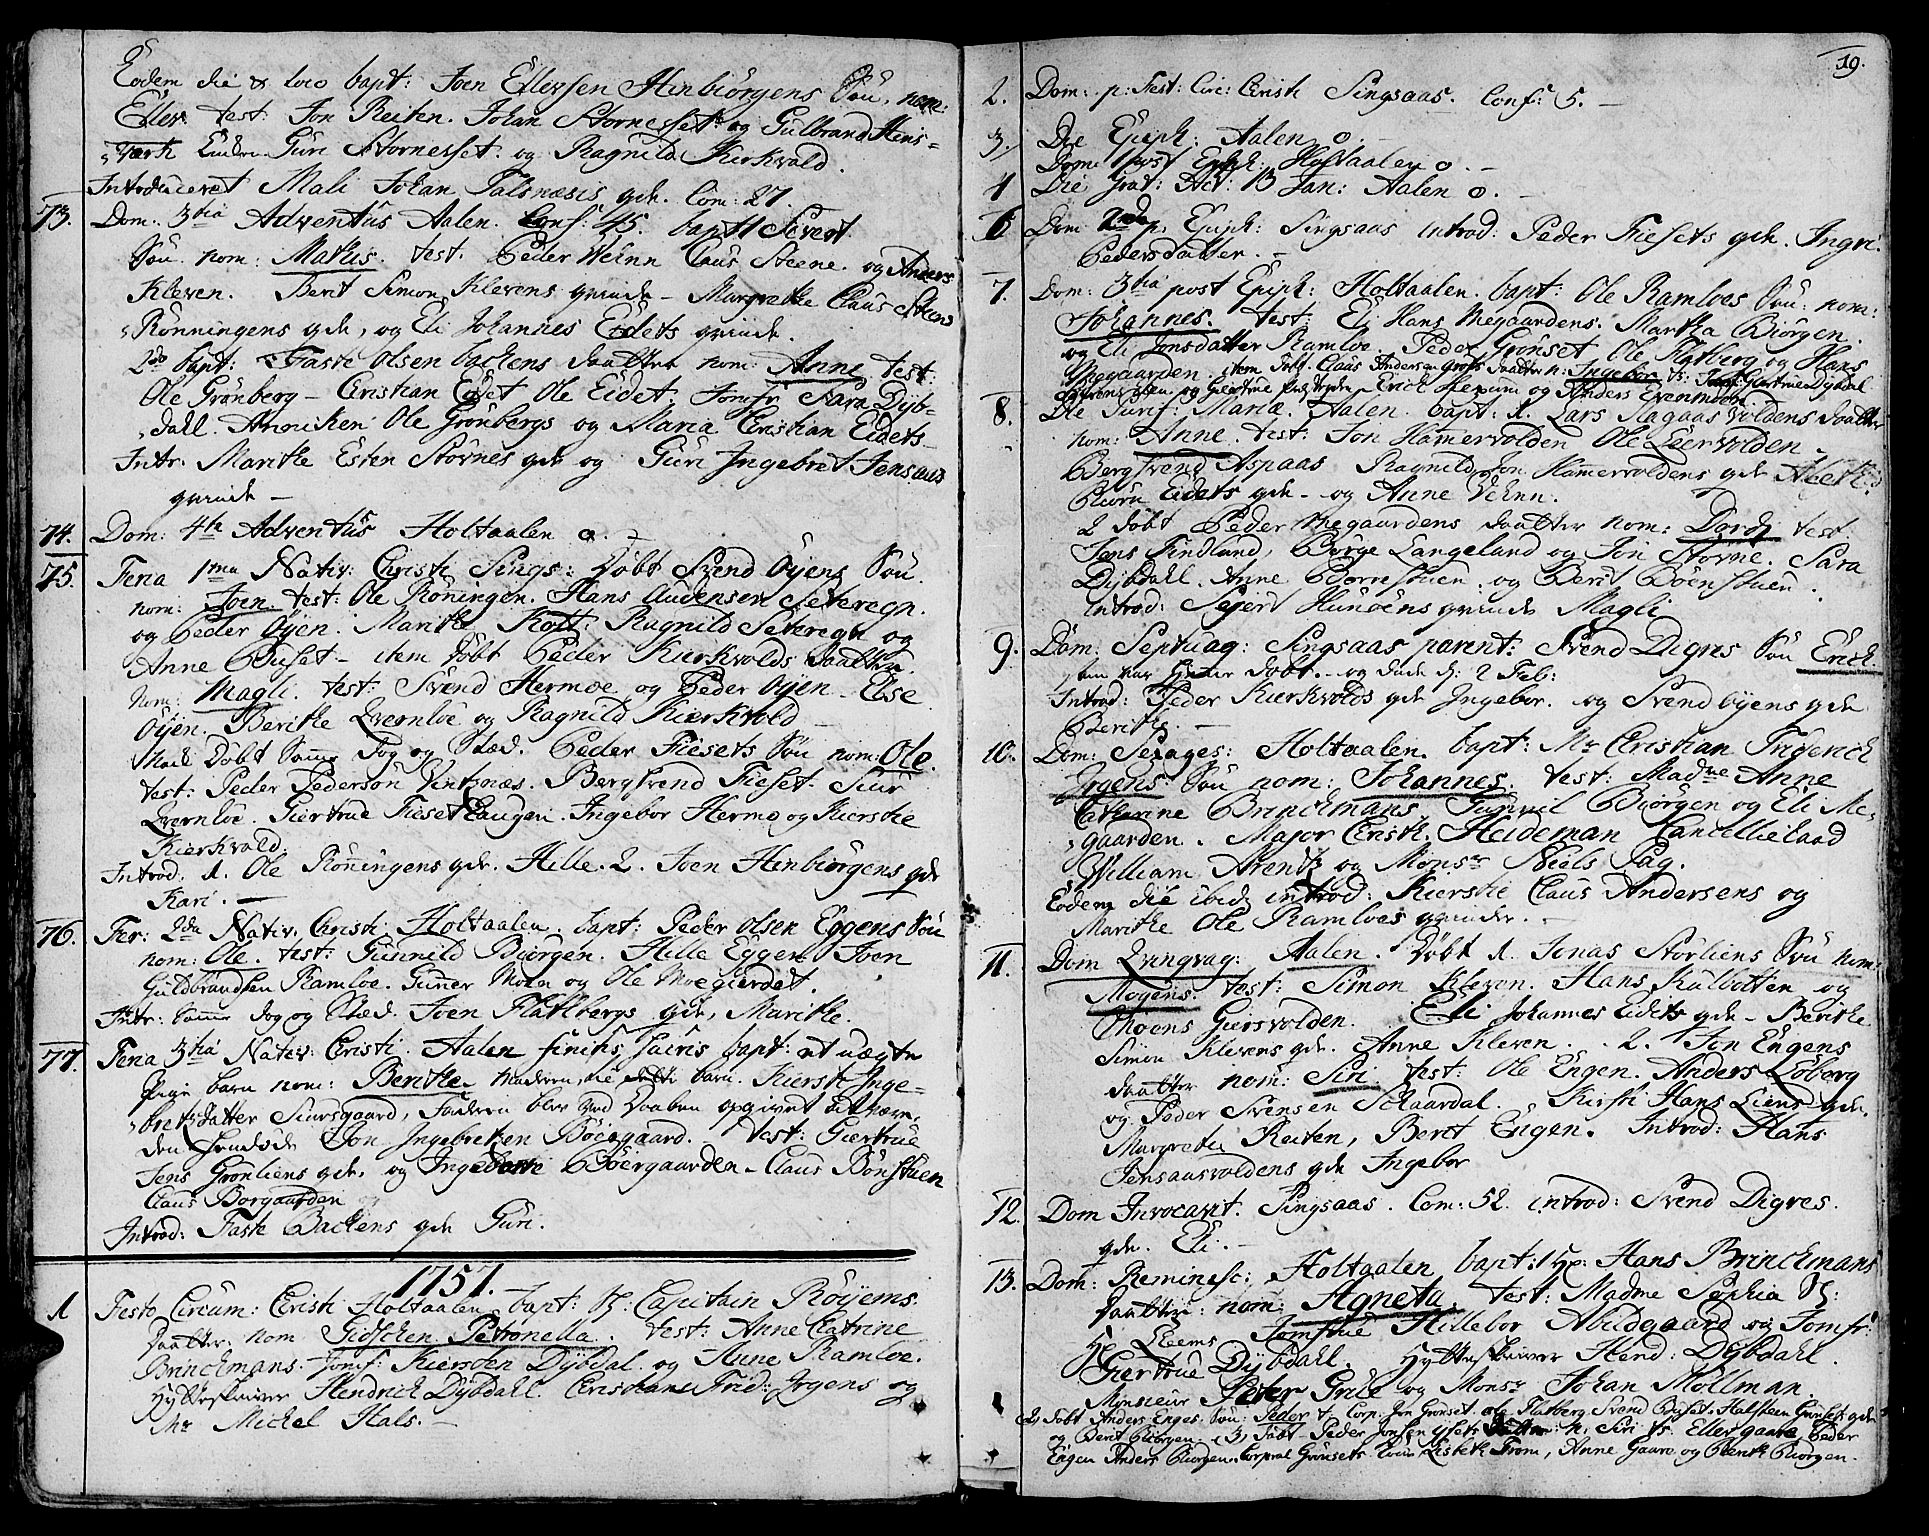 Eodem die & loco bapt: Joen Ellefsen Henbiörgens Sön, nom:
Ellev. test: Jon Reiten. Johan Stornesset og Gulbrand Hens-
værk Guri Stornesset. og Ragnild Kierkvold.
Introduceret Mali Johan Talsnæsis qde. Com: 27.
73. Dom: 3tia Adventus Aalen. Conf: 45. bapt 1 Sivert
Sön nom: Mathis. test. Peder Weinn Claus Steene. og Anders
Kleven. Berit Simon Klevens qvinde - Margrethe Claus Steens
Rönningens qde, og Eli Johannes Eidets qvinde.
2do bapt: Faste Olsen backens daatter nom: Anne test:
Ole Grönberg - Cristian Eidet Ole Eidet. Jomfr Sara Dyb-
dahl. Anniken Ole Grönbergs og Maria Cristian Eidets-
Intr: Marithe Esten Stövnes qde og Guri Ingebret Jensaas
qvinde -
74. Dom: 4te Adventus Holtaalen o.
75. Feria 1ma Nativ: Christi Sings: Döbt Svend Öyens Sön.
nom: Joen. test: Ole Röningen. Hans Audensen Seteregn.
og Peder Öyen. Marithe Kott: Ragnild Seteregn og
Anne Buset - item döbt Peder Kierkvolds daatter
nom: Magli. test: Svend Hermoe og Peder Öyen - Else
Öyen. Berithe Qvernloe og Ragnild Kierkvold
Hiock Döbt samme Dag og Sted. Peder Fiesets Sön nom: Ole.
test: Peder Pederson Vintsnæs. Bergsvend Fieset. Siur
Qvernloe. Giertrue Fieset Ingeborg Hermo og Kierstie
Kierkvold.
Introd: 1. Ole Röningens qde. Hille. 2. Joen Henbiörgens qde
Kari. -
76. Fer: 2da Nativ. Christi Holtaalen. bapt: Peder Olsen Eggens Sön
nom: Ole. test: Gunnild Buörgen. Hille Eggen Joen
Guldbrandsen Ramloe. Guner Moen og Ole Moegierdet.
Intr: samme dag og Sted. Joen Flatbergs qde, Marithe.
77. Feria 3tia Nativ: Christi. Aalen finitis sacris bapt: et uægte
Pige barn nom: Berithe. Moderen til dette barn. Kiersti Inge-
bretsdatter Siursgaard, Faderen blev ved Daaben opgivet at være,
den Jon Ingebretsen Böegaard. test: Giertrue
Jens Grönliens qde, og Ingeborg Böergaarden - Claus Bönstuen
Claus Borgaarden
Introd: Faste Backens qde Guri.
1757.
1 Festo Circum: Christi Holtaalen bapt: Capitain Röyems
daatter. nom Gidschen Petronella. test: Anne Catrine
Brinckmans. Jomf: Kiersten Dybdal og Anne Ramloe.
Hytteskriver Hendrich Dybdahl. Cristian Frid: Jrgens og
Mr Michel Hals. -
19.
2. Dom: p: Fest: Circ: Cristi Singsaas. Conf: 5. -
3. Die Epiph: Aalen o. -
Dom: 1 post Epiph: Holtaalen o -
4 Die Grat: Act: 13 Jan: Aalen o. -
6 Dom 2nda p. Epiph: Singsaas introd: Peder Fiesets qde. Ingri.
Pedersdatter. -
7. Dom: 3tia post Epiph: Holtaalen. bapt: Ole Ramloes Sön. nom:
Johannes. test: Eli Hans Megaardens. Martha Biörgen.
og Eli Jonsdatter Ramloe. Peder Grönset Ole Flatberg og Hans
Megaarden. item Döbt. Claus Andersen daatter n: Ingebor ts: Jomf: Giertrue Dybdal
og Giertrue Erich og Anders Evenmoen.
8. Die Purif: Mariæ. Aalen. bapt: 1. Lars Aagaas voldens daatter
nom: Anne. test: Jon Hamervolden Ole Leervolden -
Bergsvend Aspaas Ragnild Jon Hamervoldens qde
Biörn Eidets qde - og Anne Veinn.
2 döbt Peder Megaardens daatter nom: Dordi test:
Jens Findland, Börge Langeland og Jon Störne. Sara
Dybdahl. Anne Börnstuen og Berit Böenstuen.
introd: Sejert Hunoens qvinde Magli
9. Dom: Septuag: Singsaas parent: Svend Digres Sön Erich.
som var hjeme döbt. og döde d: 2 Feb:
Introd: Peder Kierkvolds qde Ingebor. og Svend öyens qde
Berithe. -
10. Dom: Sexages: Holtaalen. bapt: Mr Cristian Friderich
Jrgens Sön nom: Johannes. test: Madme Anne
Catharine Brinckmans Gunnil Biörgen og Eli Me-
gaarden. Major Cristi. Heideman Cancellieraad
William Arentz og Monsr Niels Pag.
Eodem die ibid introd: Kierstie Claus Andersens og
Marithe Ole Ramloes qvinder. -
11. Dom Qvinqvag: Aalen. Döbt 1. Jonas Störliens Sön nom:
Mogens. test: Simon Kleven. Hans Kulbotten og
Mogens Giersvolden. Eli Johannes Eidets qde - Berithe
Simon Klevens qde. Anne Kleven. 2. Jon Engens
daatter nom: Siri test: Ole Engen. Anders Löberg
og Peder Svensen Schaardal. Kirsti Hans Liens qde,
Margrethe Reiten, Berit Engen. Introd: Hans
Jensaasvoldens qde Ingebor
12. Dom Invocavit. Singsaas. Com: 52. introd: Svend Digres.
qde. Eli. -
13. Dom: Reminisc: Holtaalen bapt: 1 Hr: Hans Brinckmans
daatter: nom: Agneta. test: Madme Sophia
Hr Leems Jomfrue Hillebor Abildgaard og Jomfr:
Giertrue Dybdahl. Hytteskriver Hend: Dybdahl.
Monsieur Peter Grile og Monsr Johan Möllman.
2, Döbt Anders Enges Sön: Peder t. Corp: Jon Grönset. Ole Flatberg Svend Buset. Halsteen qde
og Berit Biörgen. (3) döbt - Peder Jonsen ysets daatter: n, Siri ts. Ellef gaare, Peder
Engen Anders Biörgen. Corporal Grönsets Lisbeth From, Anne Gaare og Berith Buörgen.